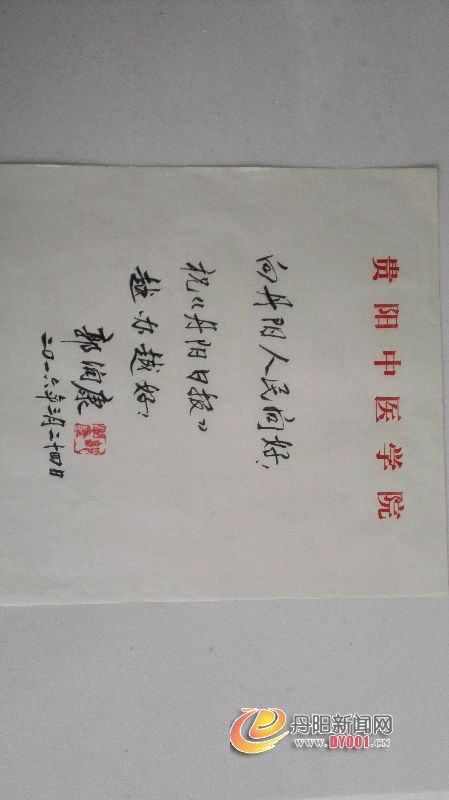 贵阳中医学院
向丹阳人民问好!
祝《丹阳日报》
越办越好!
郭润康
二0一六年三月二十四日
丹阳新闻网
WWW.DY001.CN